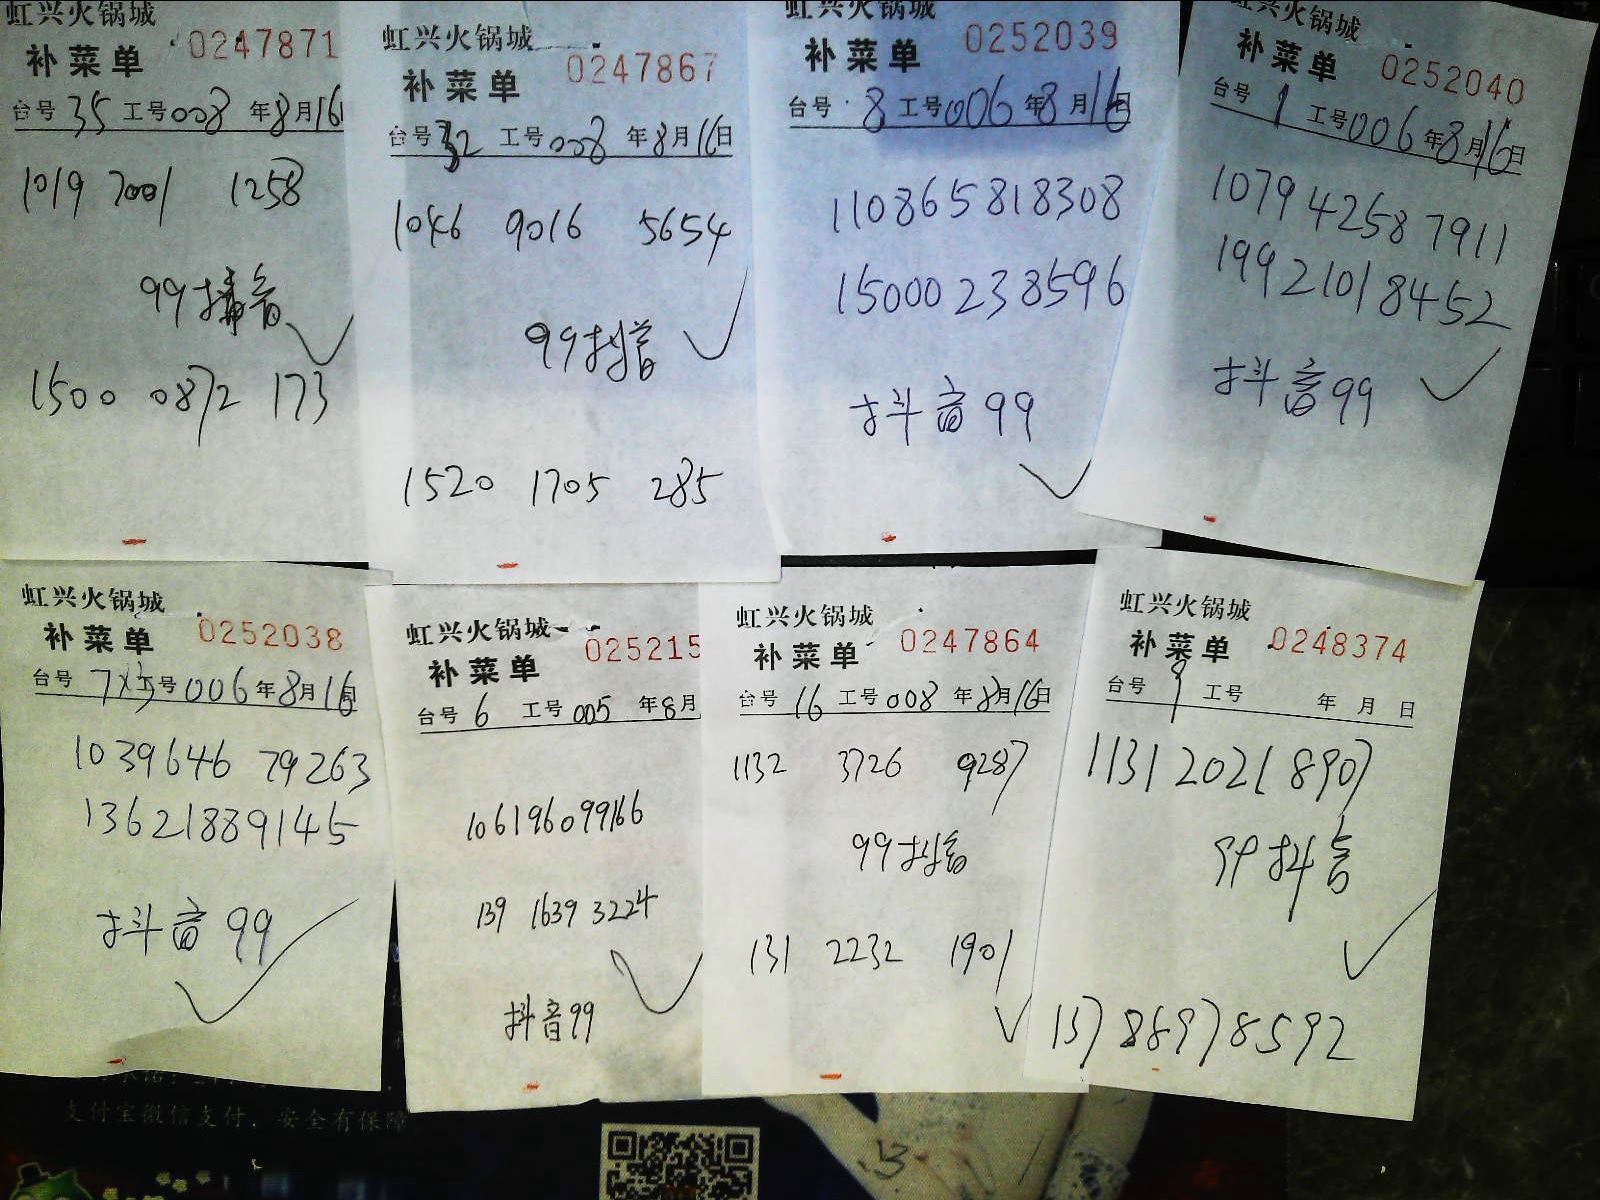 虹兴火锅城
补菜单 0247871
台号 35 工号 008 年 8 月 16
1019 7001 1258
99抖音
1500 0872 173
虹兴火锅城
补菜单 0247867
台号 32 工号 008 年 8 月 16 日
1046 9016 5654
99抖音
1520 1705 285
虹兴火锅城
补菜单 0252039
台号 8 工号 006 年 8 月 16 日
110865818308
15000238596
抖音99
虹兴火锅城
补菜单 0252040
台号 1 工号 006 年 8 月 16 日
107942587911
19921018452
抖音99
虹兴火锅城
补菜单 0252038
台号 7 工号 006 年 8 月 16 日
1039646 79263
13621889145
抖音99
虹兴火锅城
补菜单 025215
台号 6 工号 005 年 8 月
106196099166
139 1639 3224
抖音99
虹兴火锅城
补菜单 0247864
台号 16 工号 008 年 8 月 16 日
1132 3726 9287
99抖音
131 2232 1901
虹兴火锅城
补菜单 0248374
台号 9 工号 年 月 日
113120218907
99抖音
13786978592
支付宝微信支付，安全有保障